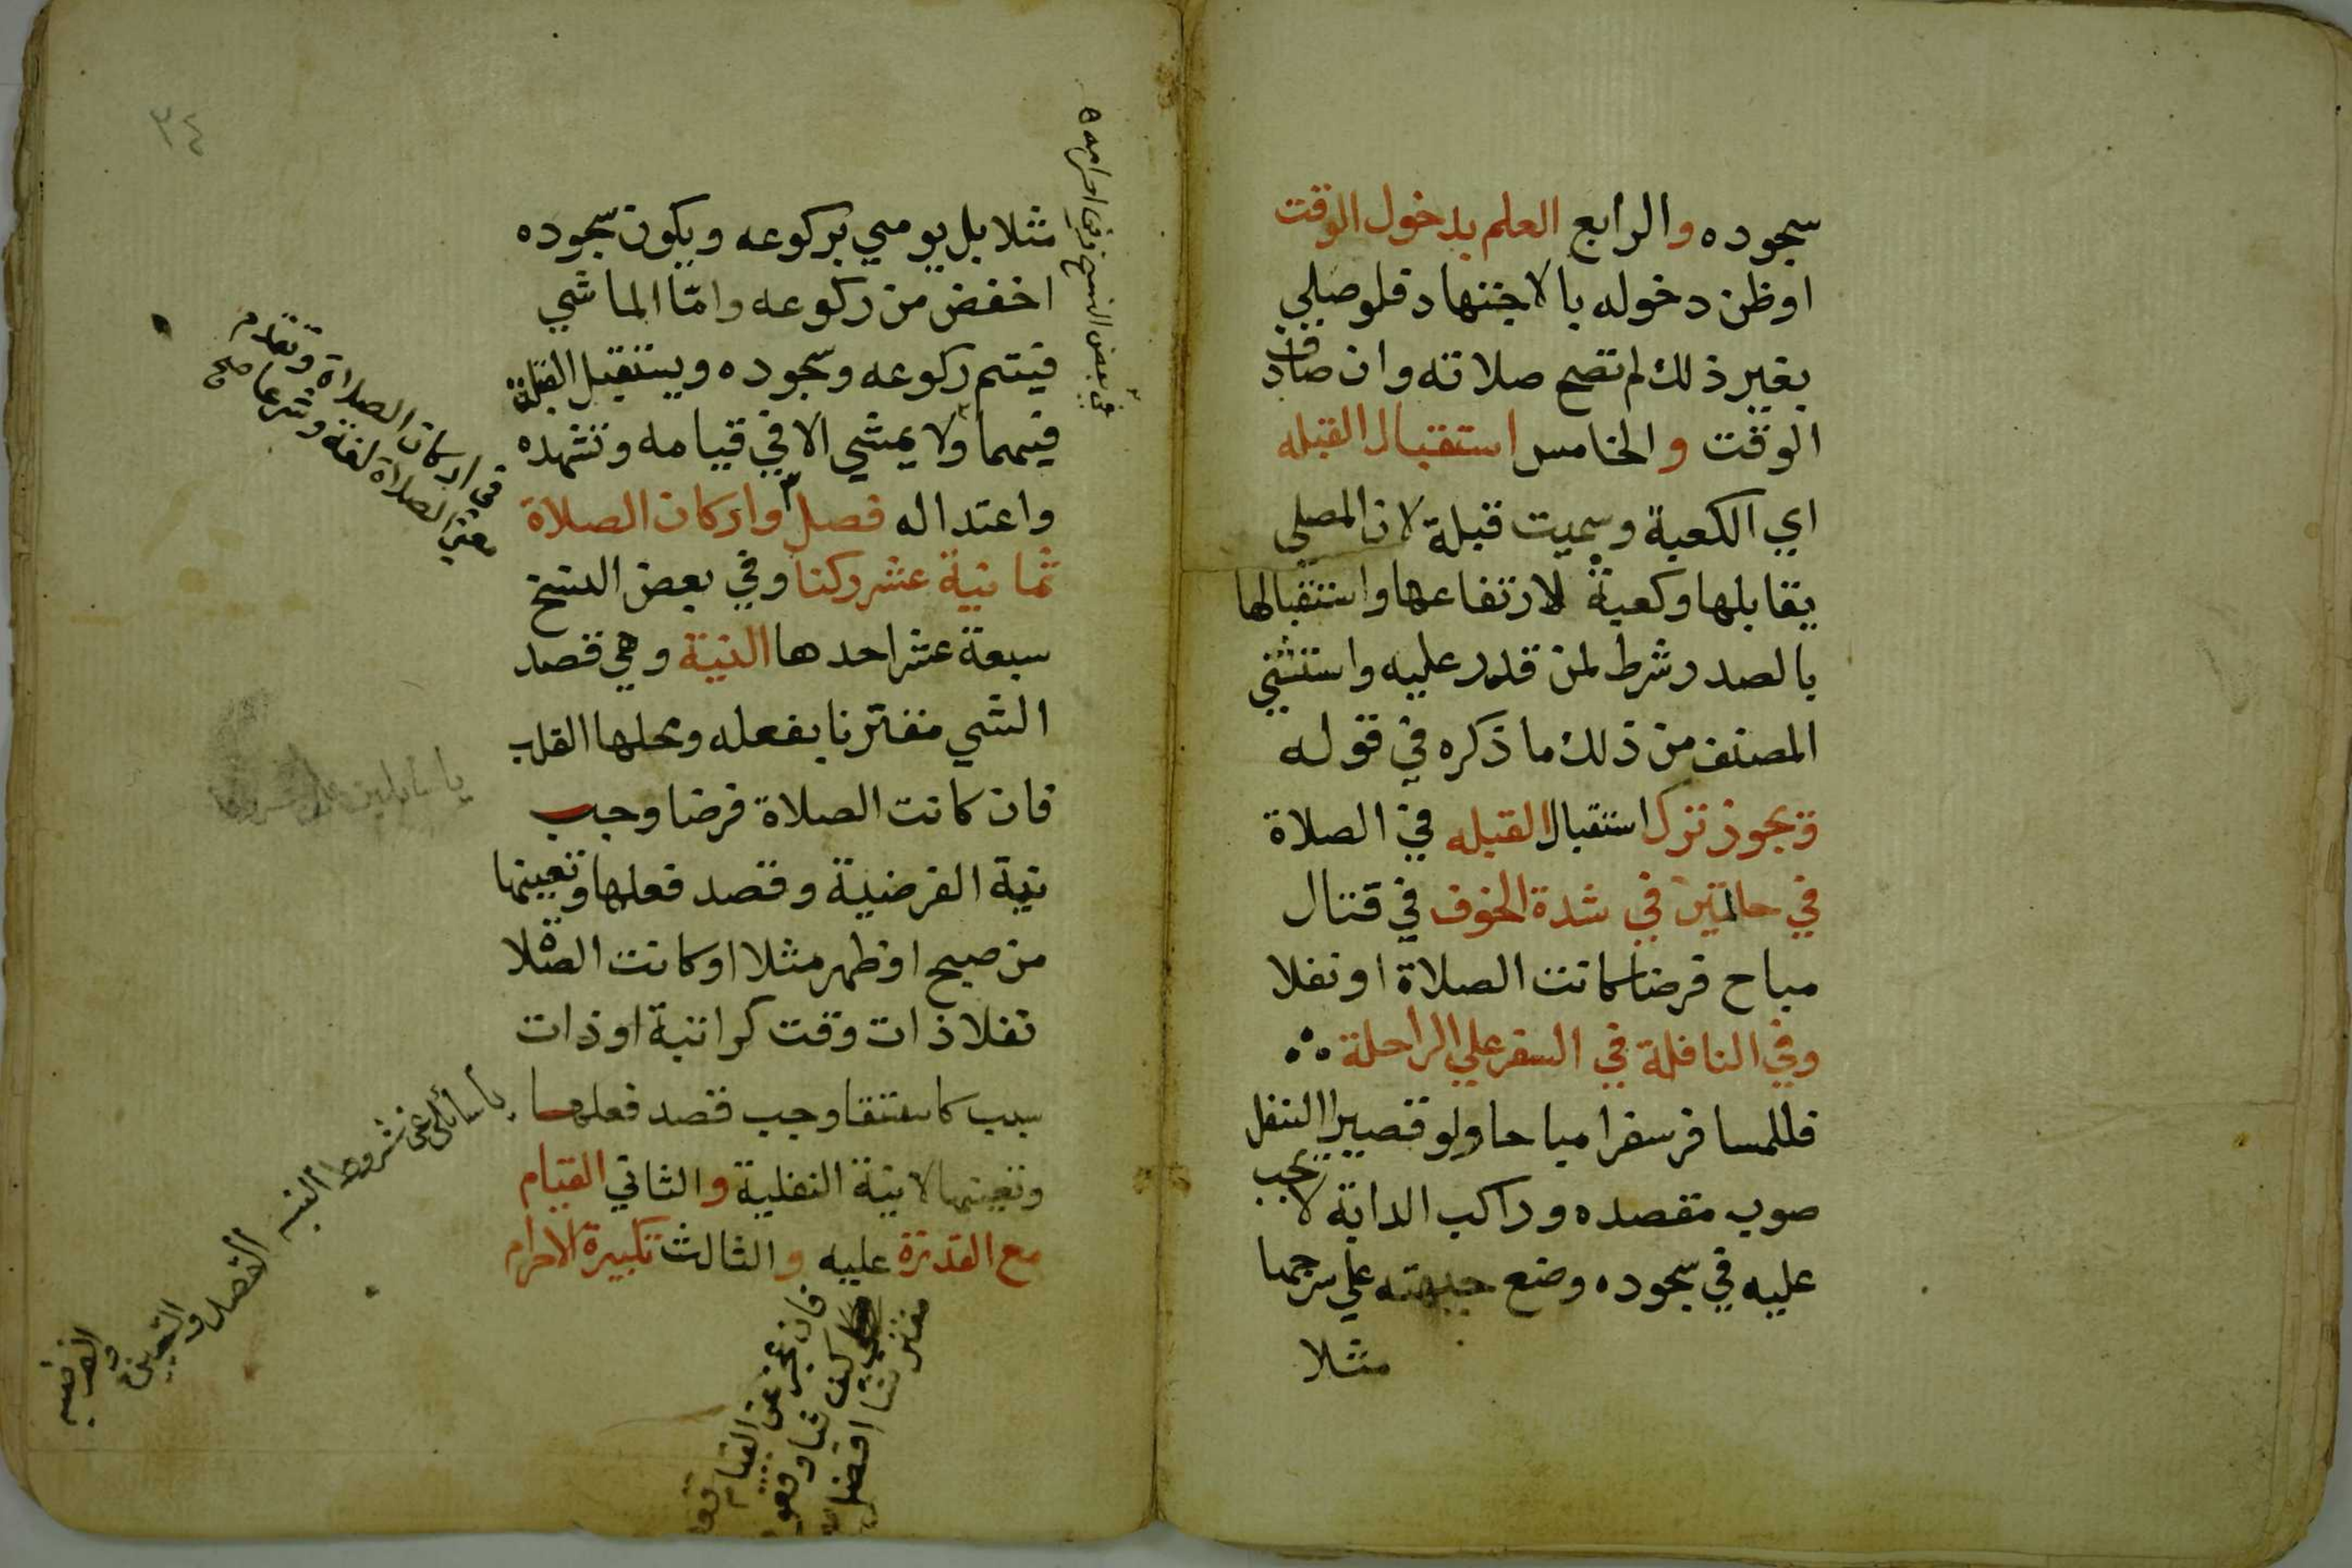 سجوده والرابع العلم بدخول الوقت
اوظن دخوله بالاجتهاد فلوصلي
بغير ذلك لم تصح صلاته وان صادف
الوقت والخامس استقبال القبله
اي الكعبة وسميت قبلة لان المصلي
يقابلها وكعبة لارتفاعها واستقبالها
بالصدر شرط لمن قدر عليه واستثني
المصنف من ذلك ما ذكره في قوله
ويجوز ترك استقبال القبله في الصلاة
في حالتين في شدة الخوف في قتال
مباح فرضا كانت الصلاة او نفلا
وفي النافلة في السفر علي الراحلة
فللمسافر سفرا مباحا ولو قصيرا التنفل
صوب مقصده وراكب الدابة لا يجب
عليه في سجوده وضع جبهته علي سرجها
مثلا
٣٤
مثلا بل يومي بركوعه ويكون سجوده
اخفض من ركوعه وامّا الماشي
فيتم ركوعه وسجوده ويستقبل القبلة
فيهما ولا يمشي الا في قيامه وتشهده
واعتداله فصل واركان الصلاة
ثمانية عشر ركنا وفي بعض النسخ
سبعة عشر احدها النية وهي قصد
الشي مقترنا بفعله ومحلها القلب
فان كانت الصلاة فرضا وجب
نية الفرضية وقصد فعلها وتعيينها
من صبح او ظهر مثلا او كانت الصلاة
نفلا ذات وقت كراتبة او ذات
سبب كاستسقا وجب قصد فعلها
وتعيينها لا نية النفلية والثاني القيام
مع القدرة عليه والثالث تكبيرة الاحرام
في بعض النسخ وفي احرامه
في اركان الصلاة وتقدم
معني الصلاة لغة وشرعا صح
ياسائلي عن شروط النيه
القصد والتعيين
والفرضيه
فان عجز عن القيام قعد
كيف شا وقعوده
مفترشا افضل